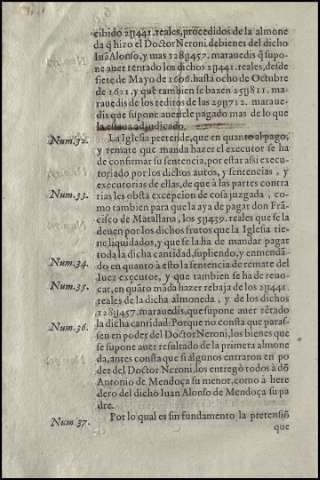 cibido 2ꝜU441.reales,procedidos de la almone
da q̃ hizo el Doctor Neroni.de bienes del dicho
Iuã Alonso, y mas 128U457. marauedis q̃ supo-
ne auer rentado los dichos 2U441.reales, desde
siete de Mayo de 1606. hasta ocho de Octubre
de 1621. y que tambien se baxen 258U811. ma-
rauedis de los reditos de las 298U712. maraue-
dis que supone auerle pagado mas de lo que
le estaua adjudicado.
Num.32. La Iglesia pretende, que en quanto al pago,
y remate que manda hazer el executor se ha
de confirmar su sentencia, por estar assi execu-
toriado por los dichos autos, y sentencias, y
executorias de ellas, de que à las partes contra-
Num.33. rias les obsta excepcion de cosa juzgada, co-
mo tambien para que la aya de pagar don Frã
cisco de Matallana, los 58U439. reales que se la
deuen por los dichos frutos que la Iglesia tie-
ne liquidados, y que se la ha de mandar pagar
toda la dicha cantidad, supliendo, y enmendã-
Num.34. do en quanto à esto la sentencia de remate del
Iuez executor, y que tambien se ha de reuo-
Num.35. car, en quãto mãda hazer rebaja de los 2U441.
reales de la dicha almoneda, y de los dichos
128U457. marauedis, que supone auer rẽtado
Num.36. la dicha cantidad: Porque no consta que paras-
sen en poder del Doctor Neroni, los bienes que
se supone auer resultado de la primera almone
da, antes consta que si algunos entraron en po-
der del Doctor Neroni, los entregò todos à dõ
Antonio de Mendoça su menor, como à here
dero del dicho Iuan Alonso de Mendoça su pa
dre.
Num 37. Por lo qual es sin fundamento la pretensiõ
que